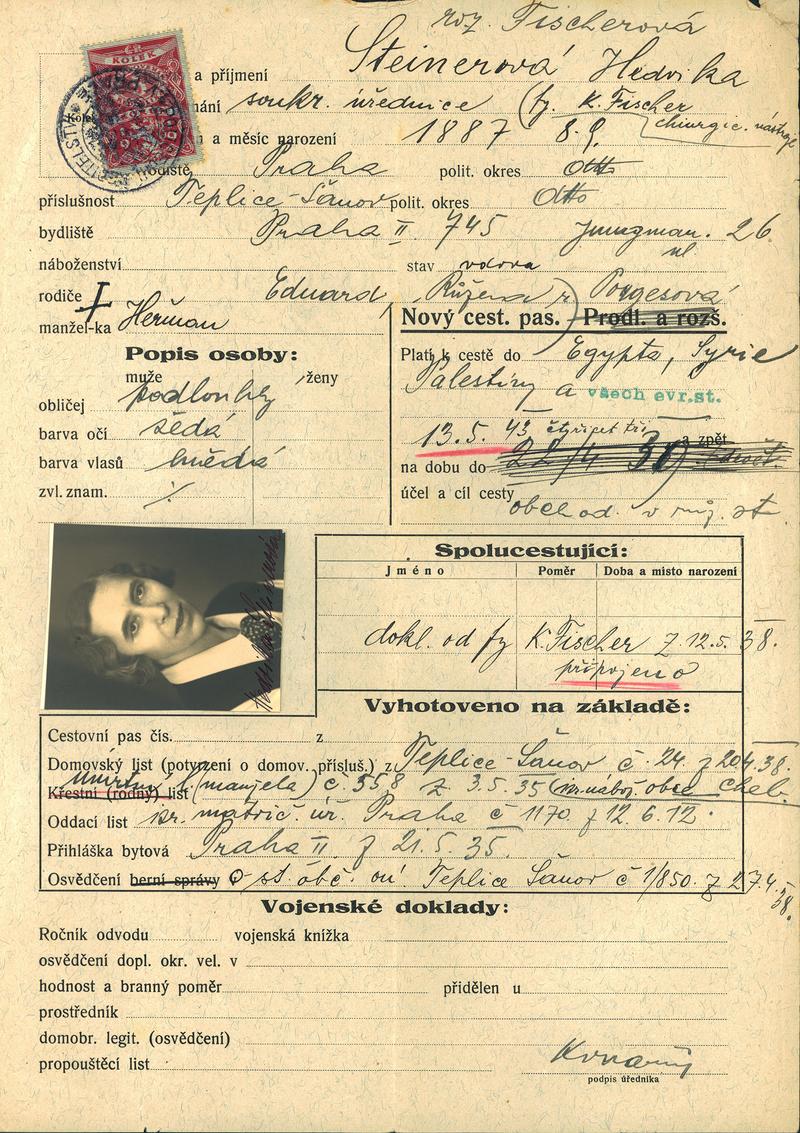 roz. Fischerová
KOLEK
a příjmení Steinerová Hedvika
soukr. úřednice (fy. K. Fischer
chirurgic. nástroje
a měsíc narození 1887 8.9.
Praha polit. okres otto
příslušnost Teplice-Šanov polit. okres otto
bydliště Praha II 745 Jungman. 26
ul
náboženství stav vdova
rodiče Eduard, Růžena r. Porgesová
manžel-ka Heřman
Nový cest. pas. Prodl. a rozš.
Popis osoby:
muže ženy
obličej podlouhlý
barva očí šedá
barva vlasů hnědá
zvl. znam. ⁒
Platí k cestě do Egypta, Syrie
Palestiny a všech evr.st.
13.5. 43 čtyřicet tři a zpět
na dobu do
účel a cíl cesty obchod. v růz. st.
Spolucestující:
Jméno Poměr Doba a místo narození
dokl. od fy K. Fischer z 12.5. 38.
připojeno
Vyhotoveno na základě:
Cestovní pas čís. z
Domovský list (potvrzení o domov. přísluš.) z Teplice-Šanov č. 24. z 20.4.38.
úmrtní
Křestní (rodný) list (manžela) č. 558 z 3.5.35 (iz. nábož. obec Cheb.
Oddací list matrič. úř. Praha č 1170 z 12.6.12.
Přihláška bytová Praha II z 21.5.35.
Osvědčení berní správy o st. obč. Teplice Šanov č 1/850. z 27.4.
38.
Vojenské doklady:
Ročník odvodu vojenská knížka
osvědčení dopl. okr. vel. v
hodnost a branný poměr přidělen u
prostředník
domobr. legit. (osvědčení)
propouštěcí list
podpis úředníka